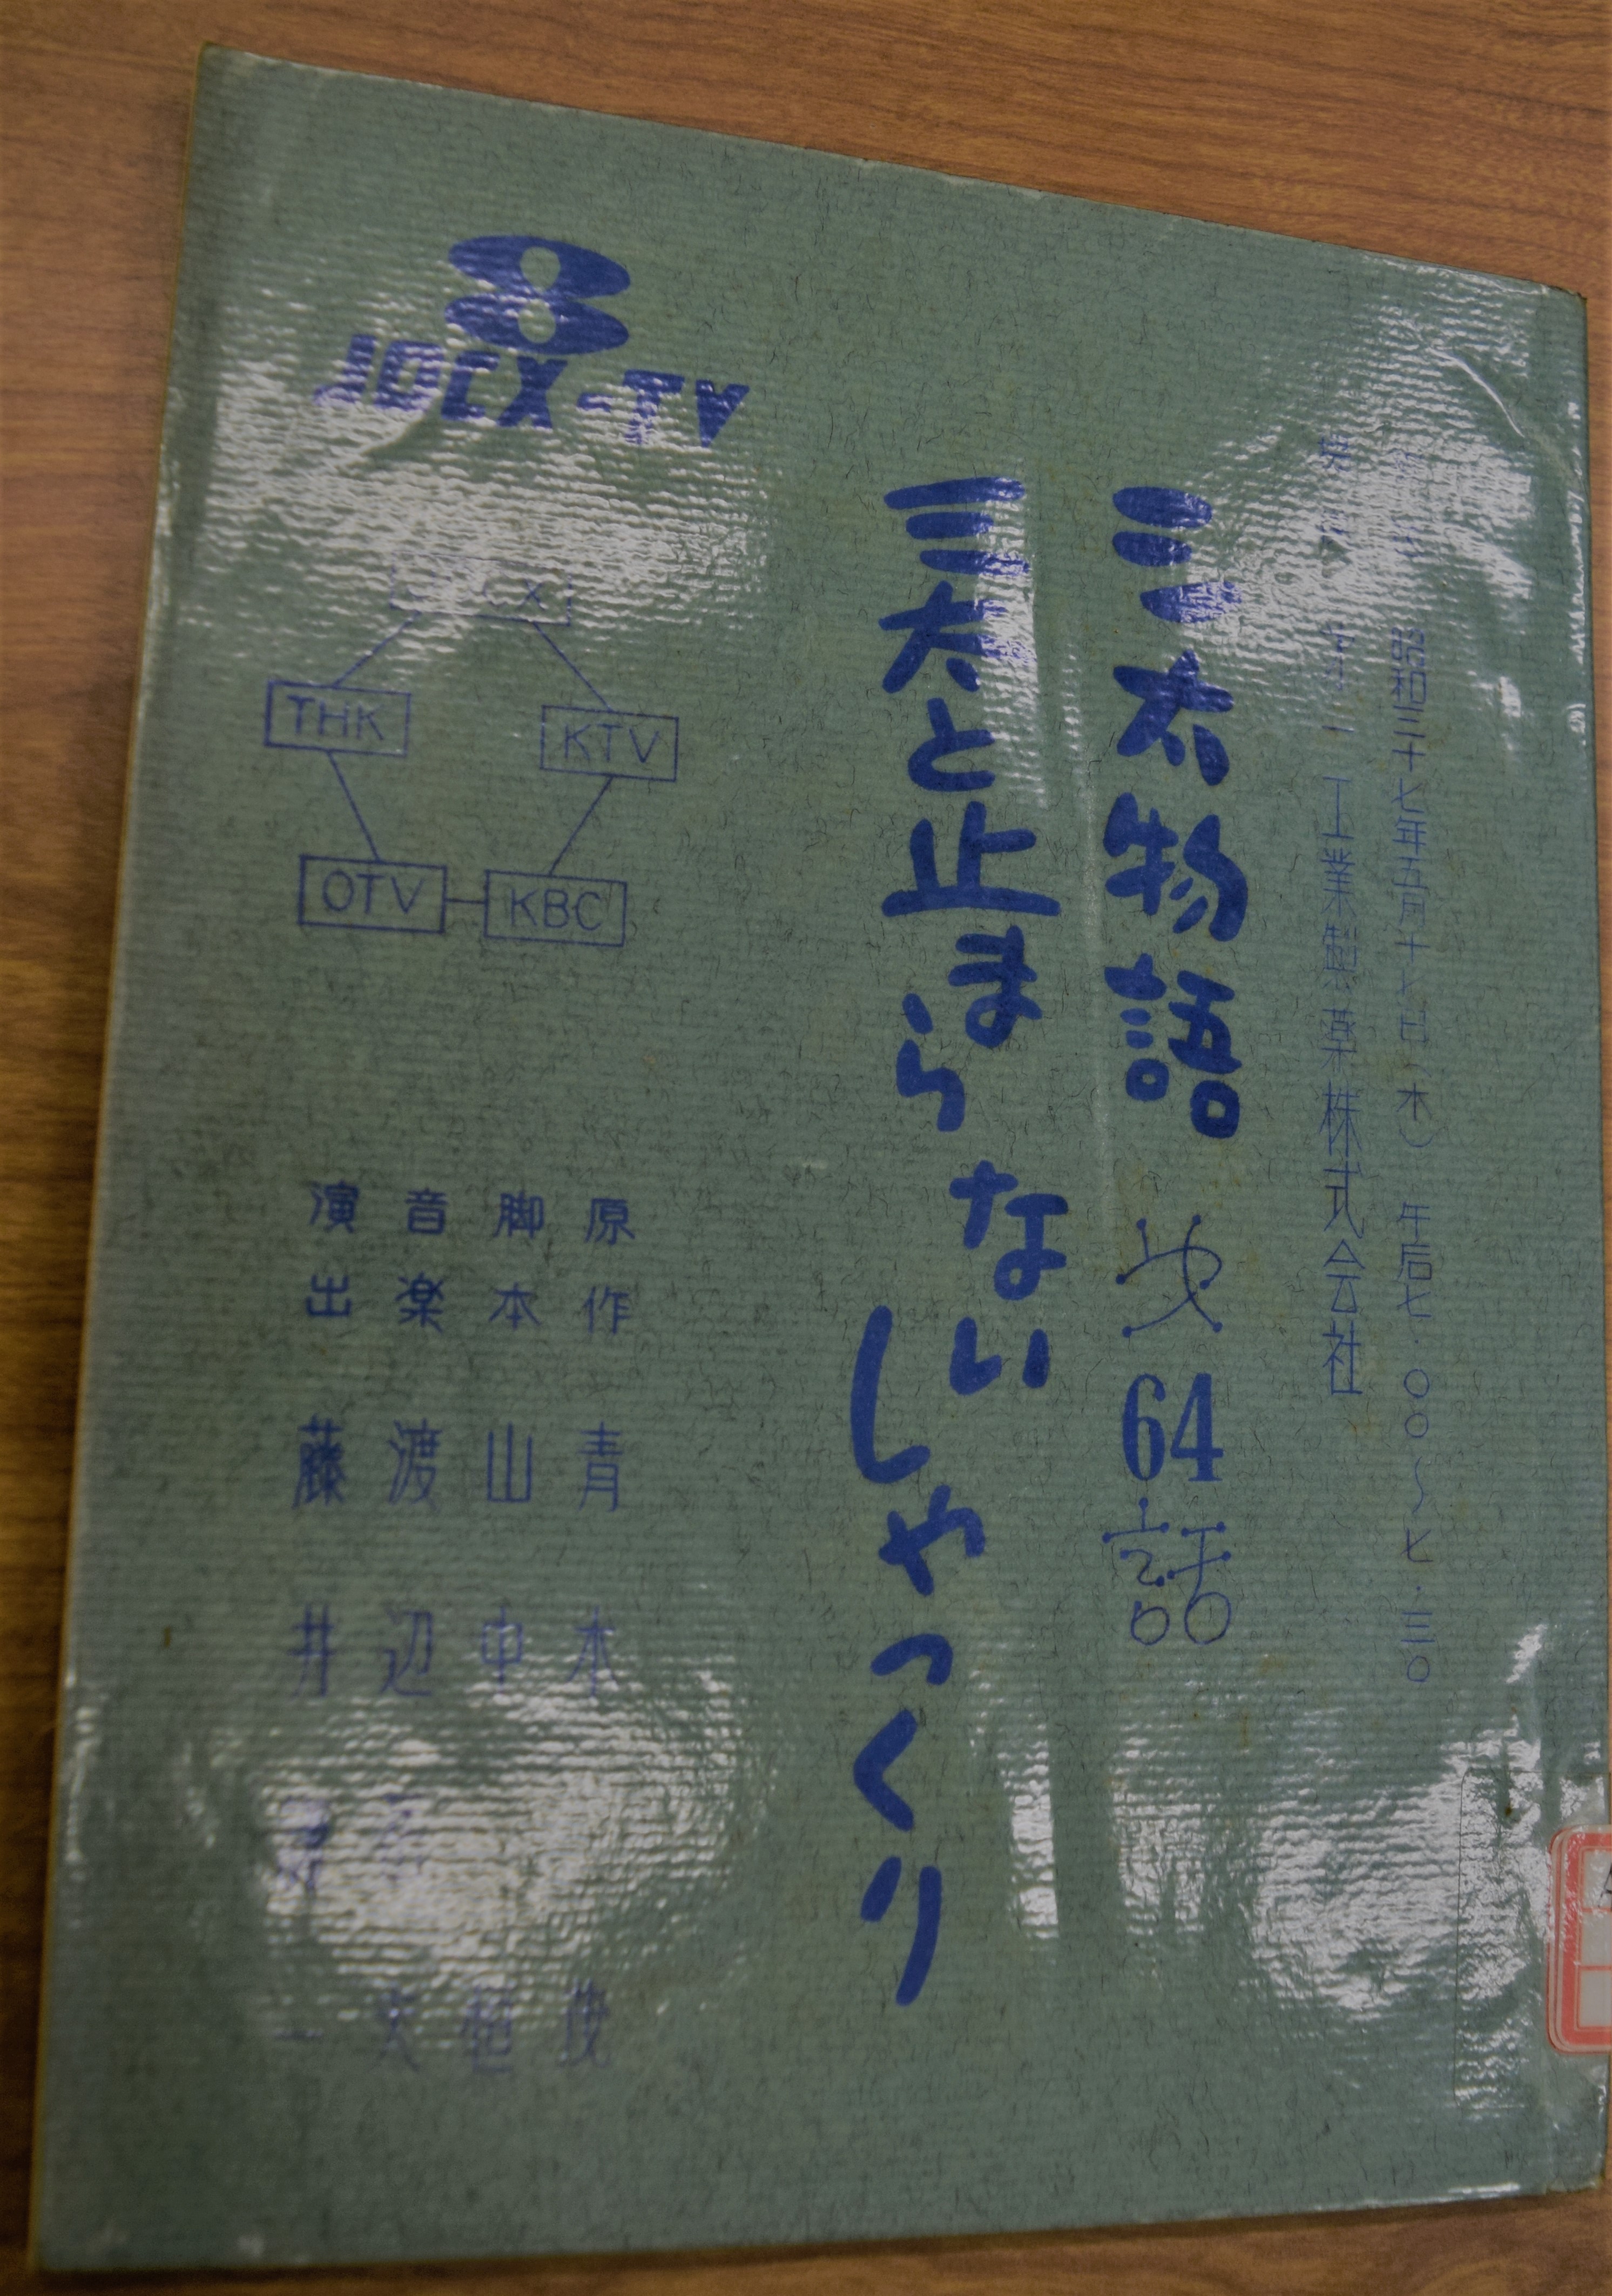 昭和三十七年五月十七日(木) 午后七・〇〇～七・三〇
工業製薬株式会社
三太物語 第64話
三太と止まらないしゃっくり
8
JOCX-TV
THK
KTV
OTV
KBC
原作 青木
脚本 山中 恒
音楽 渡辺
演出 藤井 一